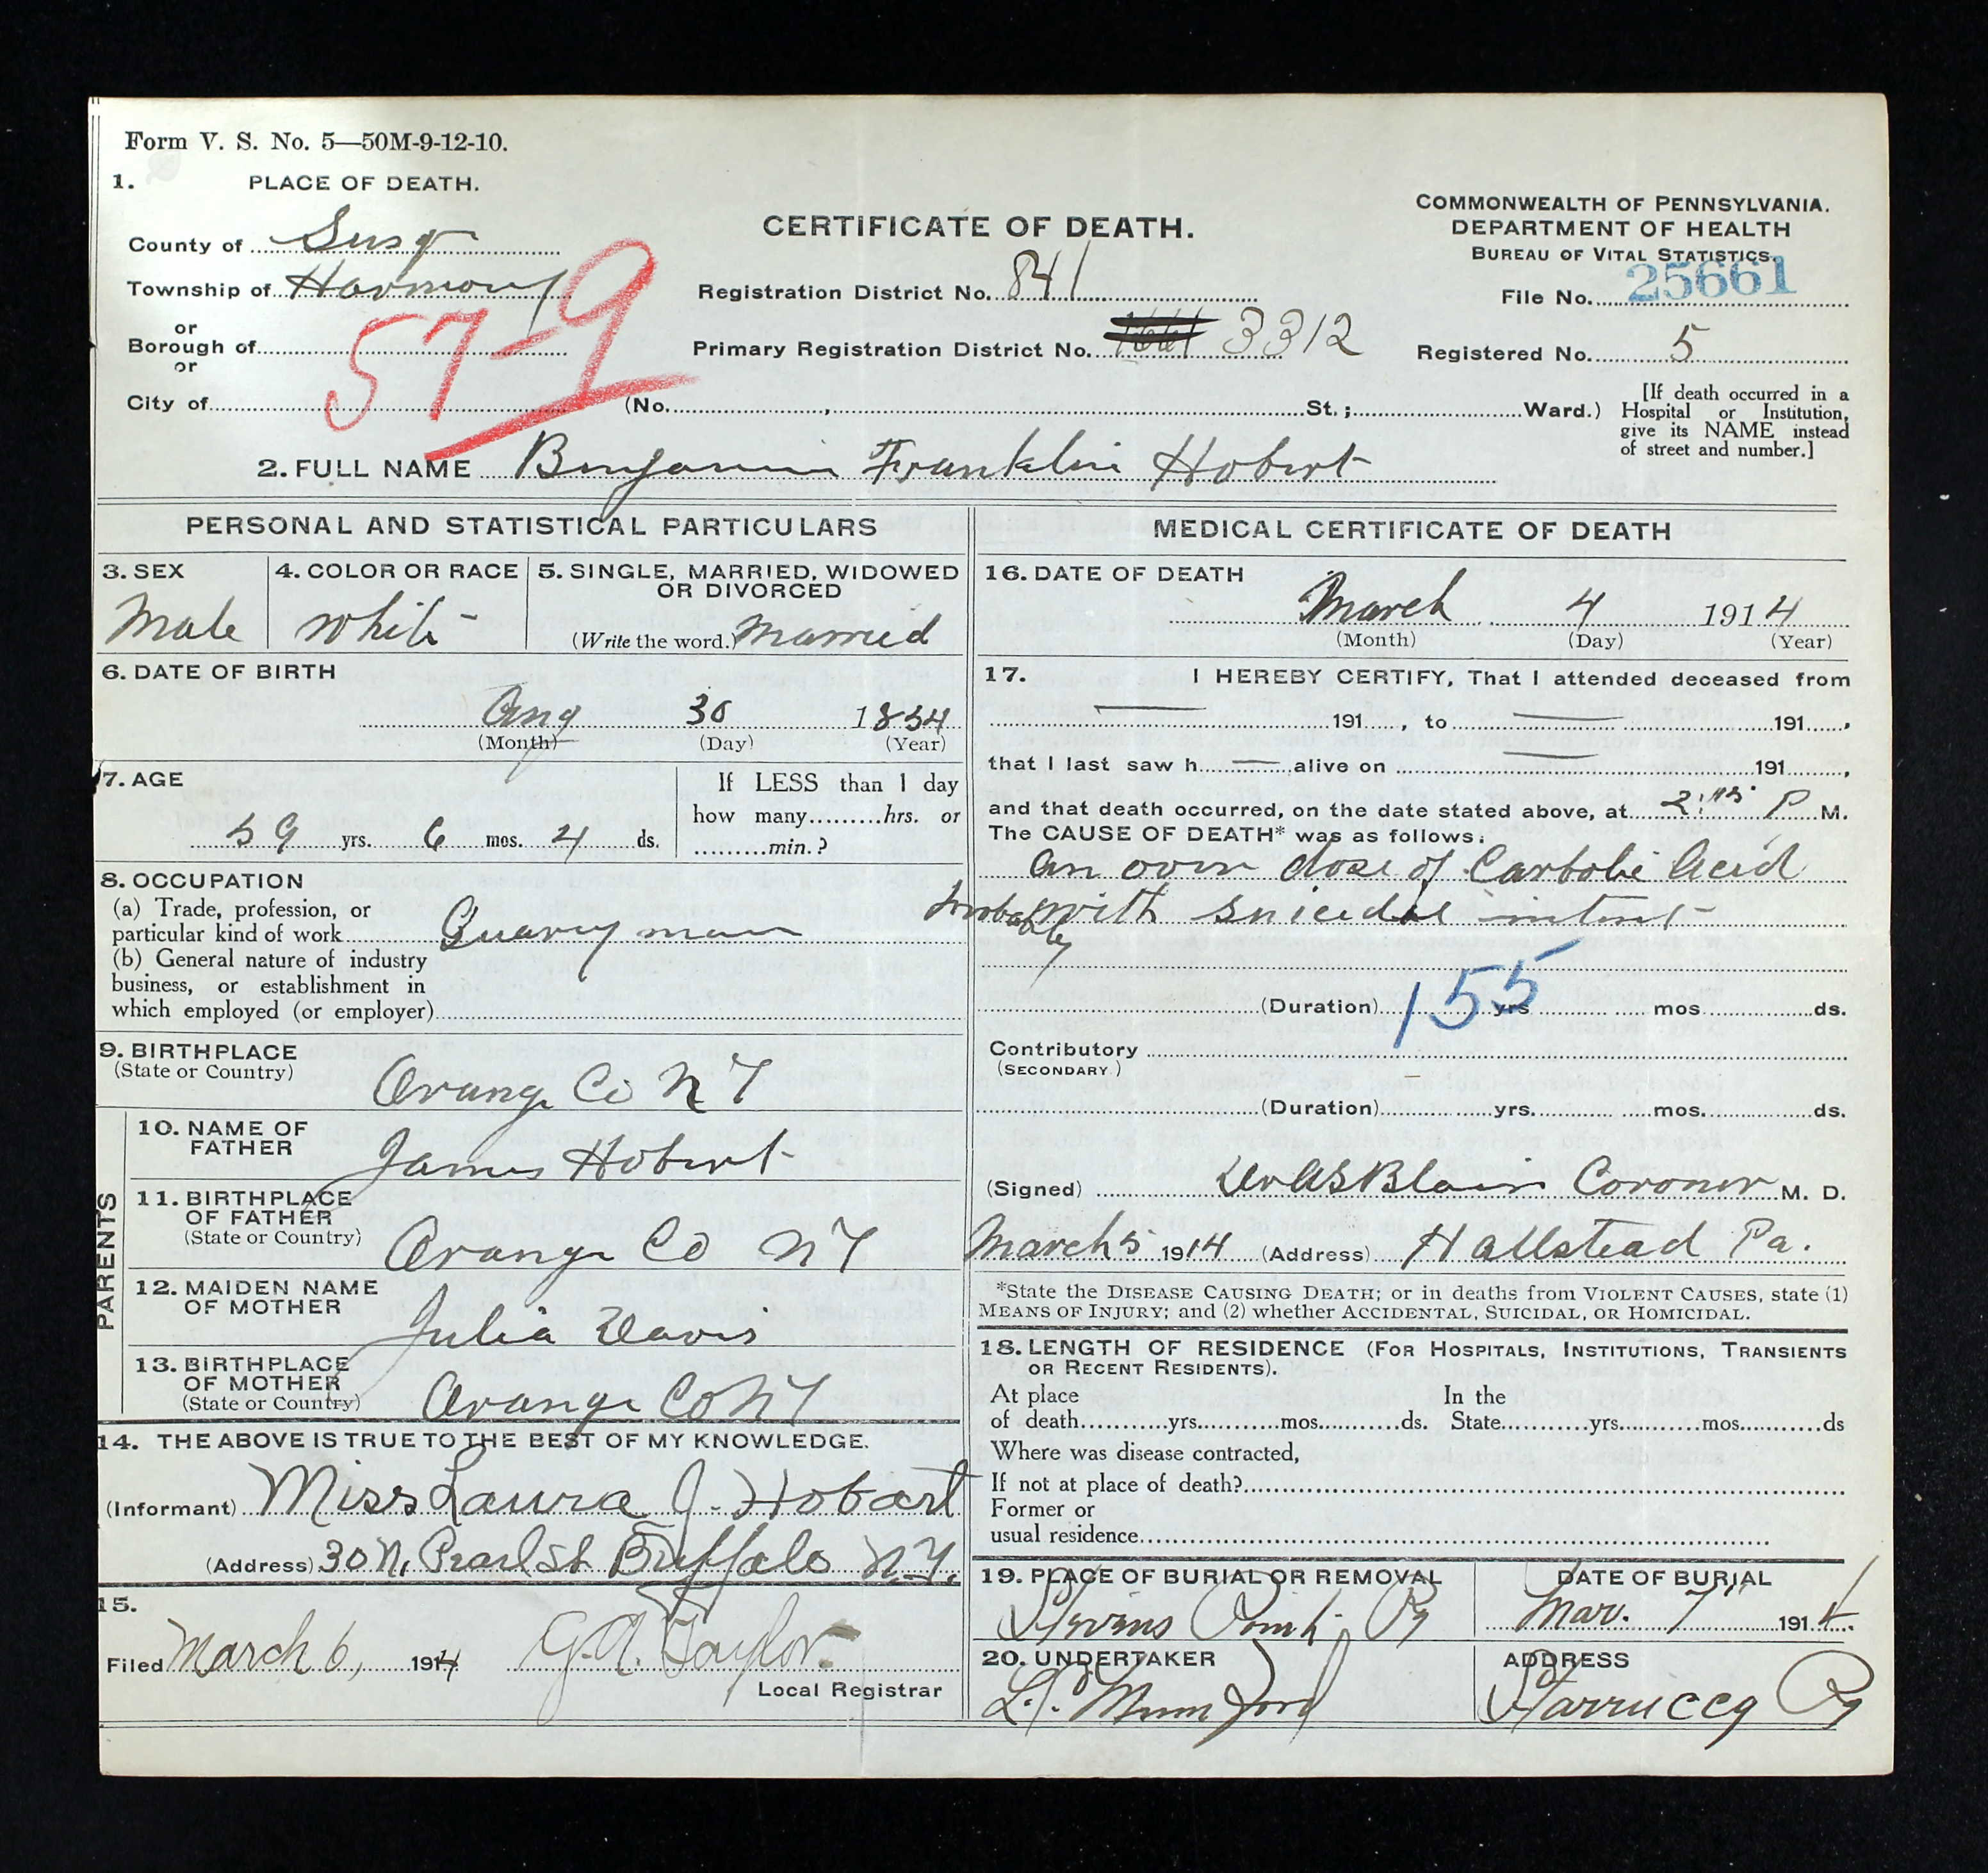 Form V. S. No. 5—50M-9-12-10.
1. PLACE OF DEATH.
County of Susq
Township of Harmony
or
Borough of
or
City of
57-9
CERTIFICATE OF DEATH.
Registration District No. 841
Primary Registration District No. 3312
COMMONWEALTH OF PENNSYLVANIA.
DEPARTMENT OF HEALTH
BUREAU OF VITAL STATISTICS.
File No. 25661
Registered No. 5
(No. , St. ; Ward.)
[If death occurred in a
Hospital or Institution,
give its NAME instead
of street and number.]
2. FULL NAME Benjamin Franklin Hobert
PERSONAL AND STATISTICAL PARTICULARS
3. SEX
Male
4. COLOR OR RACE
White
5. SINGLE, MARRIED, WIDOWED
OR DIVORCED
(Write the word.) Married
6. DATE OF BIRTH
Aug 30 1854
(Month) (Day) (Year)
7. AGE
59 yrs. 6 mos. 4 ds.
If LESS than 1 day
how many hrs. or
min.?
8. OCCUPATION
(a) Trade, profession, or
particular kind of work Quarryman
(b) General nature of industry
business, or establishment in
which employed (or employer)
9. BIRTHPLACE
(State or Country)
Orange Co N Y
PARENTS
10. NAME OF
FATHER
James Hobert
11. BIRTHPLACE
OF FATHER
(State or Country)
Orange Co N Y
12. MAIDEN NAME
OF MOTHER
Julia Davis
13. BIRTHPLACE
OF MOTHER
(State or Country)
Orange Co N Y
14. THE ABOVE IS TRUE TO THE BEST OF MY KNOWLEDGE.
(Informant) Miss Laura J. Hobart
(Address) 30 N. Pearl St Buffalo N.Y.
15.
Filed March 6, 1914 G.A. Taylor
Local Registrar
MEDICAL CERTIFICATE OF DEATH
16. DATE OF DEATH
March 4 1914
(Month) (Day) (Year)
17. I HEREBY CERTIFY, That I attended deceased from
191 , to 191 ,
that I last saw h alive on 191 ,
and that death occurred, on the date stated above, at P M.
The CAUSE OF DEATH* was as follows:
An over dose of Carbolic Acid
probably with suicidal intent
(Duration) yrs mos ds.
155
Contributory
(SECONDARY)
(Duration) yrs. mos. ds.
(Signed) Dr A S Blair Coroner M. D.
March 5 1914 (Address) Hallstead Pa.
*State the DISEASE CAUSING DEATH; or in deaths from VIOLENT CAUSES, state (1)
MEANS OF INJURY; and (2) whether ACCIDENTAL, SUICIDAL, OR HOMICIDAL.
18. LENGTH OF RESIDENCE (FOR HOSPITALS, INSTITUTIONS, TRANSIENTS
OR RECENT RESIDENTS).
At place In the
of death yrs. mos. ds. State yrs. mos. ds
Where was disease contracted,
If not at place of death?
Former or
usual residence
19. PLACE OF BURIAL OR REMOVAL
Stevens Point Pa
DATE OF BURIAL
Mar. 7" 1914.
20. UNDERTAKER
L.P. Mumford
ADDRESS
Starrucca Pa